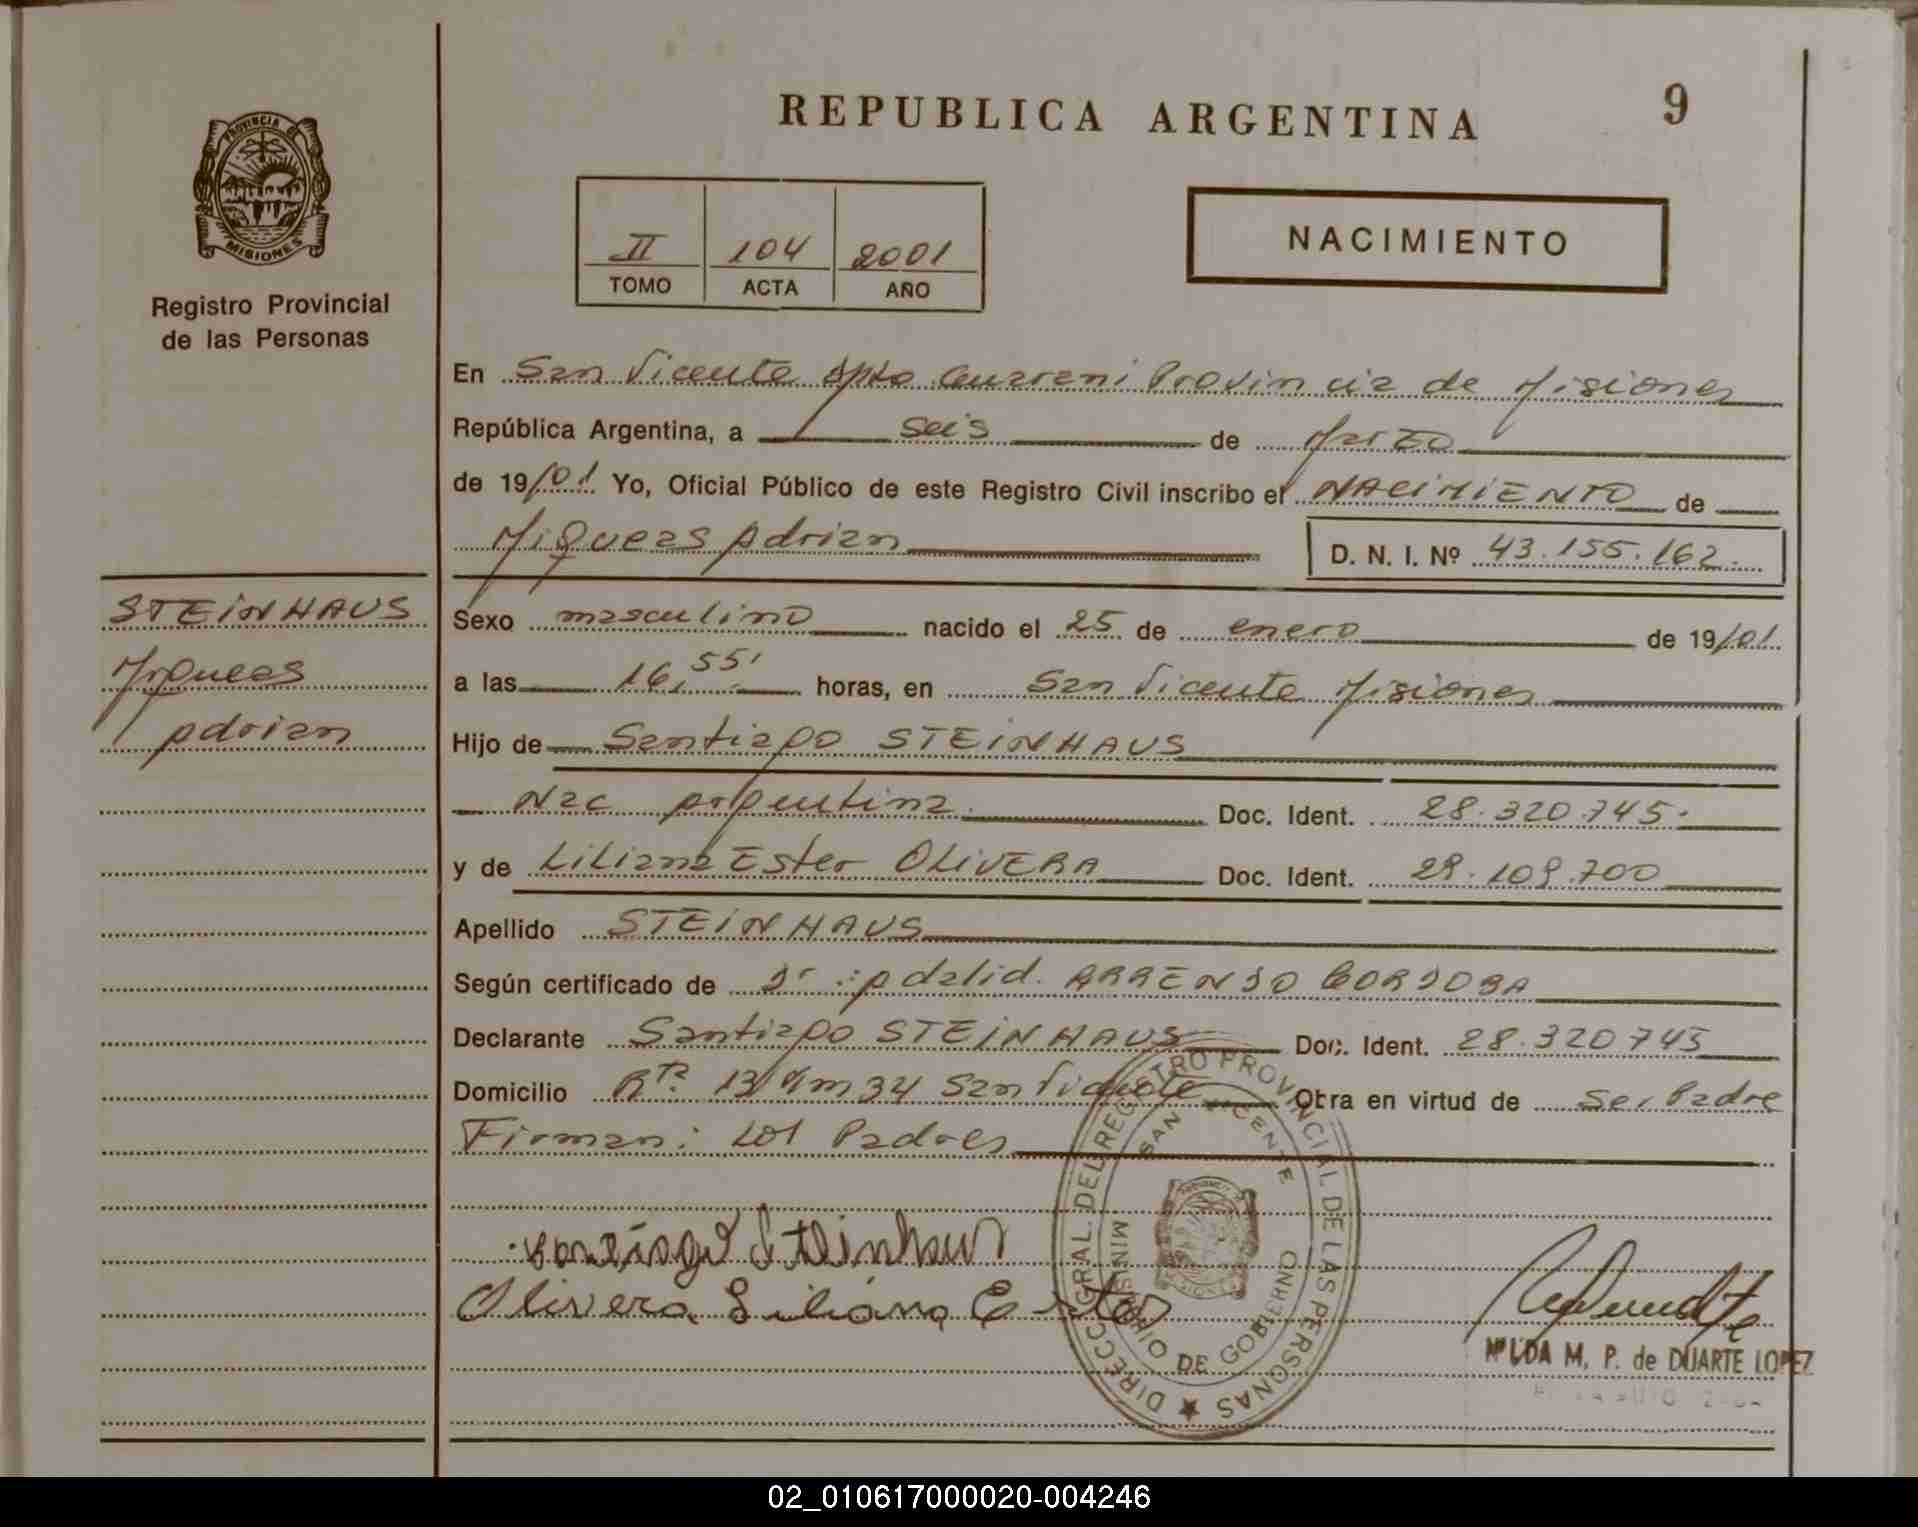 REPUBLICA ARGENTINA
9
PROVINCIA DE
MISIONES
Registro Provincial
de las Personas
II 104 2001
TOMO ACTA AÑO
NACIMIENTO
En San Vicente Dpto Guarani Provincia de Misiones
República Argentina, a seis de Marzo
de 19/01 Yo, Oficial Público de este Registro Civil inscribo el NACIMIENTO de
Miqueas Adrian
D. N. I. Nº 43.155.162
STEINHAUS
Miqueas
Adrian
Sexo masculino nacido el 25 de enero de 19/01
a las 16,55' horas, en San Vicente Misiones
Hijo de Santiago STEINHAUS
Nac Argentina Doc. Ident. 28.320.745.
y de Liliana Ester OLIVERA Doc. Ident. 29.109.700
Apellido STEINHAUS
Según certificado de Dr: Adalid. ARRENDO CORDOBA
Declarante Santiago STEINHAUS Doc. Ident. 28.320745
Domicilio Rta 13 Km 34 San Vicente Obra en virtud de Ser Padre
Firman: Los Padres
Santiago Steinhaus
Olivera Liliana Ester
DIRECC. GRAL. DEL REGISTRO PROVINCIAL DE LAS PERSONAS
SAN VICENTE
MINISTERIO DE GOBIERNO
M. P. de DUARTE LOPEZ
02_010617000020-004246